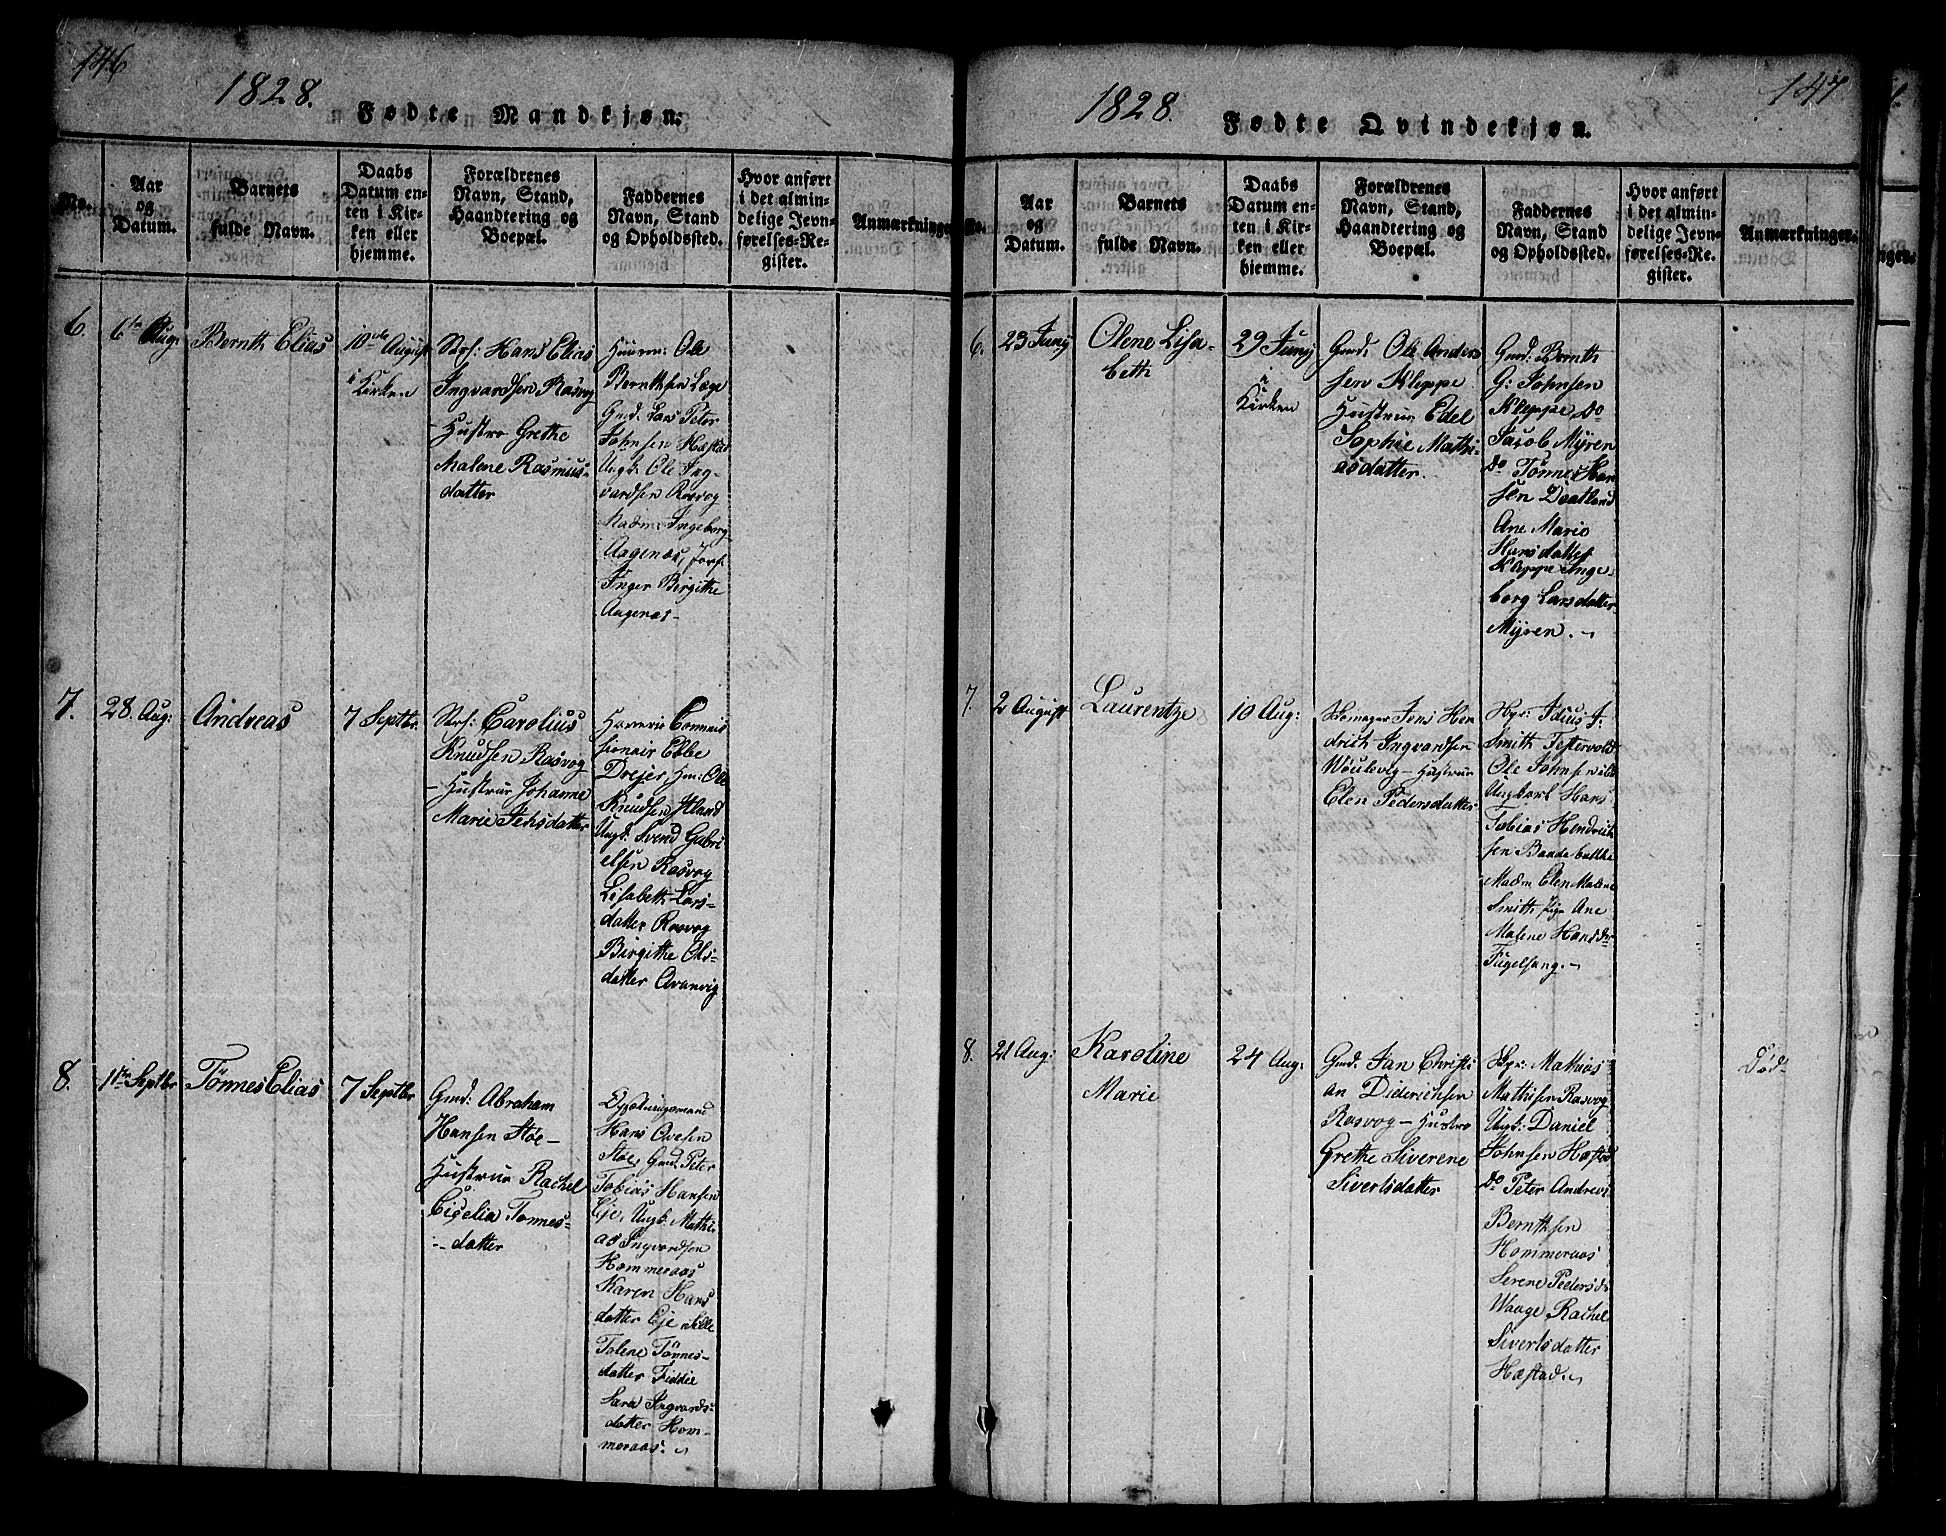 146
1828.
Fødte Mandkjøn.
No.
Aar
og
Datum.
Barnets
fulde Navn.
Daabs
Datum en-
ten i Kir-
ken eller
hjemme.
Forældrenes
Navn, Stand,
Haandtering og
Boepæl.
Faddernes
Navn, Stand
og Opholdssted.
Hvor anført
i det almin-
delige Jevn-
førelses-Re-
gister.
Anmærkninger
6.
6te Aug:
Bernth Elias
10de August
i
Kirken
Hans Elias
Ingvardsen Rasvog
Hustro Grethe
Malene Rasmus-
datter
Ole
Berntsen Lege
Gmd. Lars Peter
Johnsen Hæstad
Ungk: Ole Ing-
vardsen Rasvog
Madm: Ingeborg
Aagenæs, Jomf:
Inger Birgithe
Aagenæs-
7.
28. Aug:
Andreas
7 Septbr.
Carolius
Knudsen Rasvog
-Hustrue Johanne
Marie Jensdatter
Commis-
sionair Ebbe
Drejer, Ole
Knudsen
Ungk: Svend Gabri
elsen Rasvog
Lisabeth Lars-
datter Rasvog
Birgithe Ols-
datter
8.
11te Septbr
Tönnes Elias
7 Septbr
Gmd: Abraham
Hansen Støe-
Hustrue Rachel
Cicelia Tønnes-
-datter
Hans Ovesen
Støe, Gmd. Peter
Tobias Hansen
Eje, Ungk: Mathi
as Ingvardsen
Hommeraas
Karen Hans
datter Eje
Tolene Tönnes-
datter Fidde
Sara Ingvards-
datter Hom-
meraas.
147
1828.
Fødte Qvindekjøn.
No.
Aar
og
Datum.
Barnets
fulde Navn.
Daabs
Datum en-
ten i Kir-
ken eller
hjemme.
Forældrenes
Navn, Stand,
Haandtering og
Boepæl.
Faddernes
Navn, Stand
og Opholdssted.
Hvor anført
i det almin-
delige Jevn-
førelses-Re-
gister.
Anmærkninger.
6.
23 Juny
Olene Lisa-
beth
29 Juny
i
Kirken
Gmd. Ole Anders
sen Kleppe
Hustrue Edel
Sophie Mathi-
asdatter.
Gmd: Bernth
G: Johnsen
Kleppe Do
Jacob Myren
Do Tønnes Han
sen Daatland
Ane Marie
Hansdatter
Kleppe Inge-
borg Larsdatter
Myren.
7.
2 August
Laurentze
10 Aug:
Jens Hen
drich Ingvardsen
- Hustrue
Elen Pedersdatter
Idius J:
Smith
Ole Johnsen
Ungkarl Hans
Tobias Hendrich
sen
Madm Elen Malene
Smith Pige Ane
Malene Hansdr
Fugelsang.
8.
21 Aug:
Karoline
Marie
24 Aug:
Gmd. Jan Christi
an Diderichsen
Rasvog - Hustro
Grethe Siverene
Sivertsdatter
Mathias
Mathisen Rasvog
Ungk: Daniel
Johnsen Hæstad
Do Peter Andreas
Bernthsen
Hommeraas
Serene Pedersdr
Waage Rachel
Sivertsdatter
Hæstad.
Död